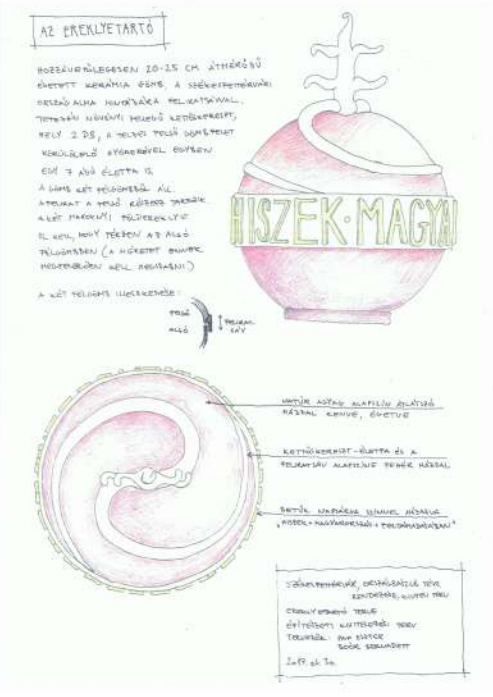 AZ EREKLYETARTÓ
HOZZÁVETŐLEGESEN 20-25 CM ÁTMÉRŐJŰ
ÉGETETT KERÁMIA GÖMB, A SZÉKESFEHÉRVÁRI
ORSZÁGALMA FELIRATSÁVVAL,
TETEJÉN NÖVÉNYI KETTŐSKERESZT,
MELY 2 DB, A TELJES FELSŐ GÖMBFELET
GYÖKERÉVEL EGYBEN
EGY 7 ÁGÚ ÉLETFA IS
A GÖMB KÉT FÉLGÖMBBŐL ÁLL
A FELIRAT A FELSŐ RÉSZHEZ TARTOZIK
A KÉT MAROKNYI FÖLDEREKLYE
EL KELL, HOGY FÉRJEN AZ ALSÓ
FÉLGÖMBBEN (A MÉRETET ENNEK
MEGFELELŐEN KELL MEGSZABNI)
A KÉT FÉLGÖMB ILLESZKEDÉSE:
FELSŐ
ALSÓ
FELIRAT
SÁV
HISZEK·MAGYA
NATÚR AGYAG ALAPSZÍN ÁTLÁTSZÓ
MÁZZAL KENVE, ÉGETVE
KETTŐSKERESZT-ÉLETFA ÉS A
FELIRATSÁV ALAPSZÍNE FEHÉR MÁZZAL
BETŰK NAPSÁRGA SZÍNNEL MÁZOLVA
"HISZEK • MAGYARORSZÁG • FELTÁMADÁSÁBAN"
SZÉKESFEHÉRVÁR, ORSZÁGZÁSZLÓ TÉR
RENDEZÉSE, KIVITELI TERV
EREKLYETARTÓ TERVE
ÉPÍTÉSZETI KIVITELEZÉSI TERV
TERVEZŐK:
BOÓR BERNADETT
2017.